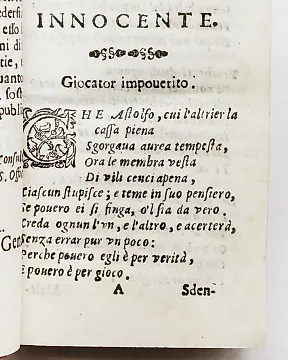 edersi
esso l
ni di
tie,
uanto
, sost
publi
onsul
s. Off
Gen
INNOCENTE.
Giocator impouerito.
CHE Astolfo, cui l'altrier la
cassa piena
Sgorgaua aurea tempesta,
Ora le membra vesta
Di vili cenci apena,
Ciascun stupisce; e teme in suo pensiero,
Se pouero ei si finga, o'l sia da vero.
Creda ognun l'vn, e l'altro, e acerterà,
Senza errar pur vn poco:
Perche pouero egli è per verità,
E pouero è per gioco.
A Sden-